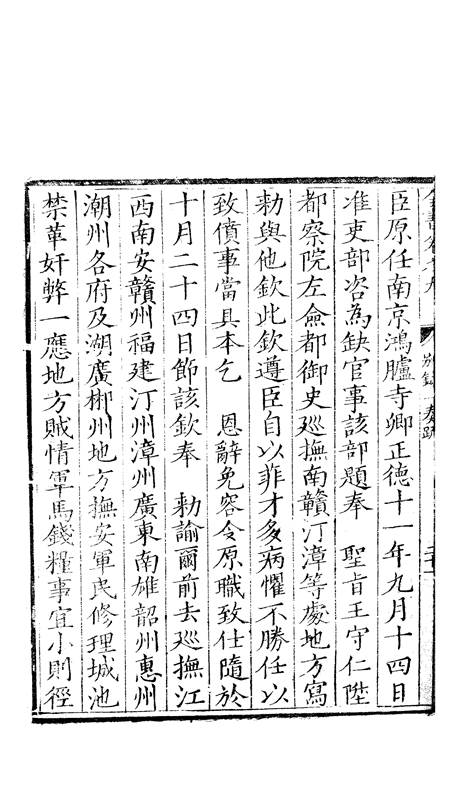 別錄一 奏疏
臣原任南京鴻臚寺卿正德十一年九月十四日
准吏部咨為缺官事該部題奉 聖旨王守仁陞
都察院左僉都御史廵撫南贛汀漳等處地方寫
勑與他欽此欽遵臣自以菲才多病懼不勝任以
致僨事當具本乞 恩辭免容令原職致仕隨於
十月二十四日節該欽奉 勑諭爾前去廵撫江
西南安贛州福建汀州漳州廣東南雄韶州惠州
潮州各府及湖廣郴州地方撫安軍民修理城池
禁革奸弊一應地方賊情軍馬錢糧事宜小則徑